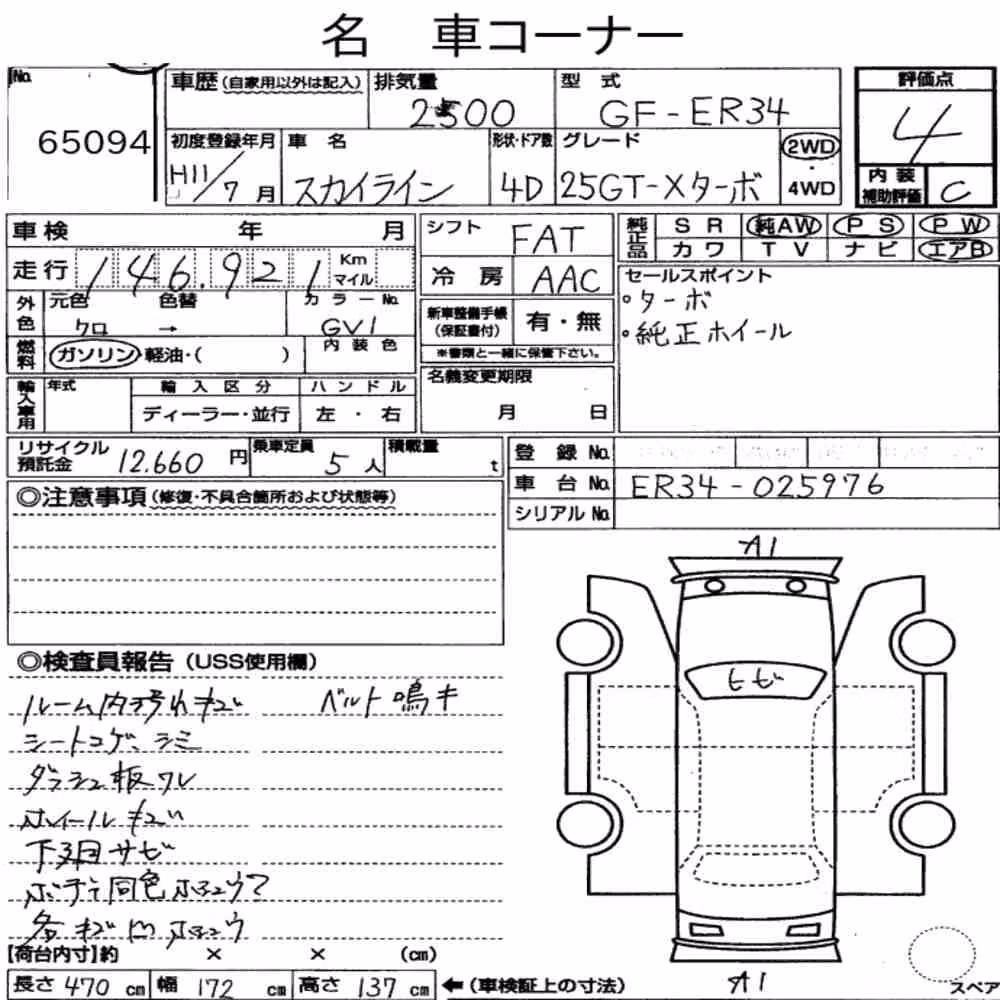 名 車コーナー
No. 65094
車歴(自家用以外は記入) 排気量 2500 型式 GF-ER34 評価点 4
初度登録年月 H11/7月 車名 スカイライン 形状・ドア数 4D グレード 25GT-Xターボ 2WD・4WD 内装補助評価 C
車検 年 月 シフト FAT 純正品 SR 純AW PS PW
走行 146.921 Km マイル 冷房 AAC カワ TV ナビ エアB
外色 元色 クロ 色替 → カラーNo. GV1 新車整備手帳(保証書付) 有・無 セールスポイント
・ターボ
・純正ホイール
燃料 ガソリン・軽油・( ) 内装色 ※書類と一緒に保管下さい。
輸入車用 年式 輸入区分 ハンドル 名義変更期限
ディーラー・並行 左・右 月 日
リサイクル預託金 12.660円 乗車定員 5人 積載量 t 登録No.
車台No. ER34-025976
シリアルNo.
◎注意事項(修復・不具合箇所および状態等)
◎検査員報告(USS使用欄)
ルーム内 キズ ベルト鳴キ
シートコゲ、シミ
ダッシュ板ワレ
ホイールキズ
下廻サビ
ボデー同色ホシュウ?
各キズ凹ホシュウ
A1
ヒビ
A1
スペア
【荷台内寸】約 × × (cm)
長さ 470 cm 幅 172 cm 高さ 137 cm ←(車検証上の寸法)